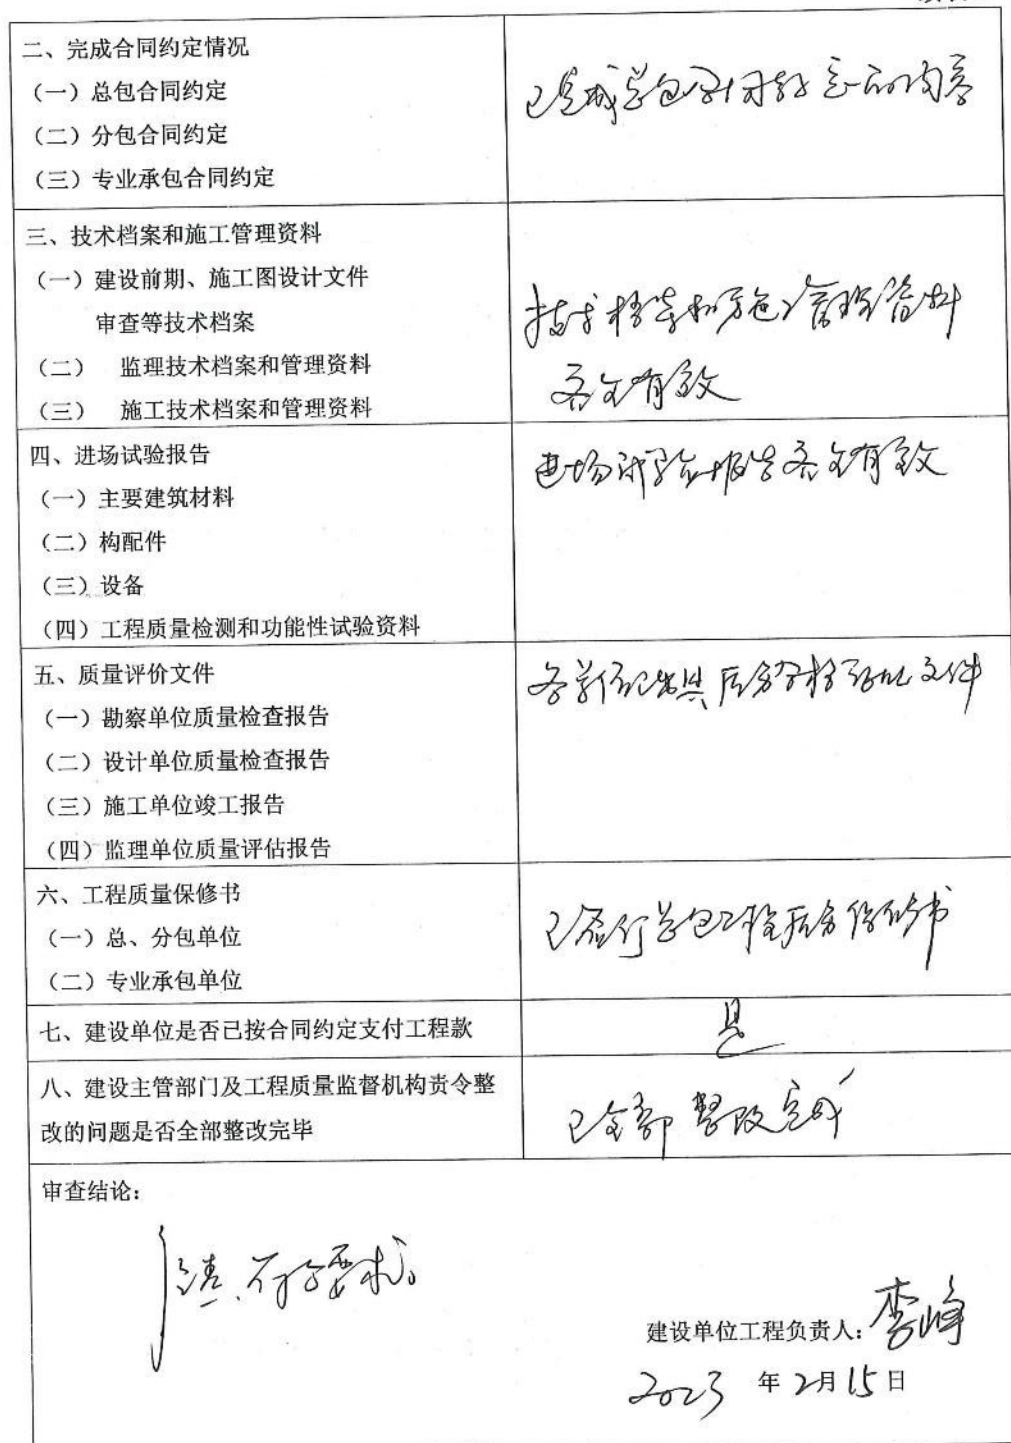 二、完成合同约定情况
（一）总包合同约定
（二）分包合同约定
（三）专业承包合同约定
已完成总包合同约定的内容
三、技术档案和施工管理资料
（一）建设前期、施工图设计文件
审查等技术档案
（二） 监理技术档案和管理资料
（三） 施工技术档案和管理资料
技术档案和施工管理资料
齐全有效
四、进场试验报告
（一）主要建筑材料
（二）构配件
（三）设备
（四）工程质量检测和功能性试验资料
进场试验报告齐全有效
五、质量评价文件
（一）勘察单位质量检查报告
（二）设计单位质量检查报告
（三）施工单位竣工报告
（四）监理单位质量评估报告
各单位已出具质量合格 文件
六、工程质量保修书
（一）总、分包单位
（二）专业承包单位
已签订总包工程质量保修书
七、建设单位是否已按合同约定支付工程款
是
八、建设主管部门及工程质量监督机构责令整
改的问题是否全部整改完毕
已全部整改完成
审查结论：
符合要求。
建设单位工程负责人：李峰
2023 年 2月 15 日